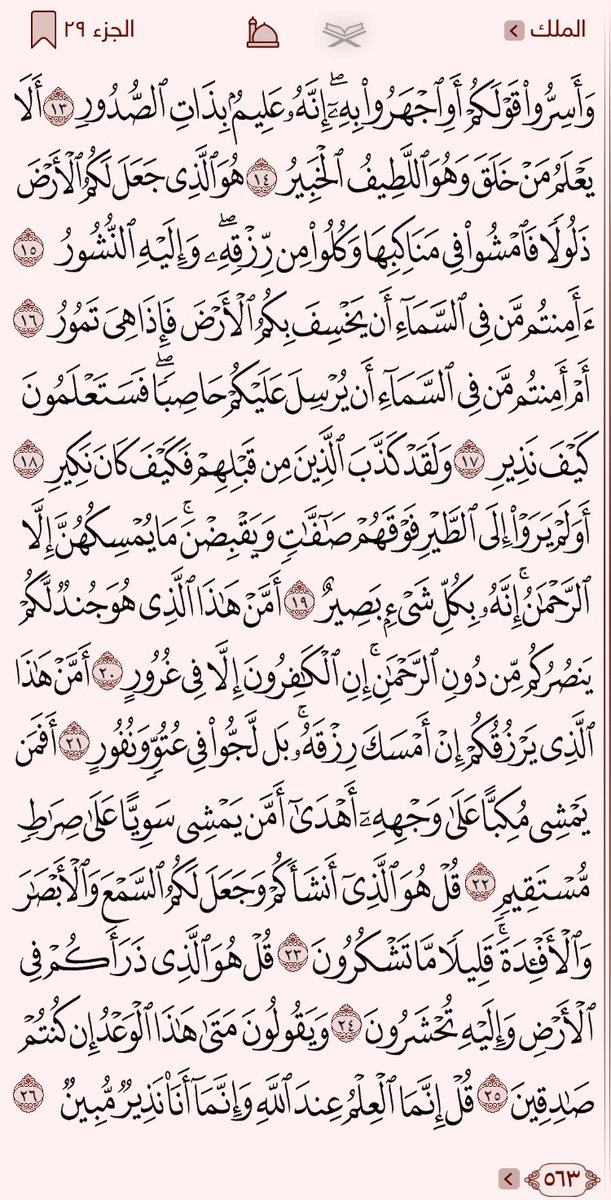 الملك الجزء ٢٩
وَأَسِرُّوا۟ قَوْلَكُمْ أَوِ ٱجْهَرُوا۟ بِهِۦٓ ۖ إِنَّهُۥ عَلِيمٌۢ بِذَاتِ ٱلصُّدُورِ ١٣ أَلَا
يَعْلَمُ مَنْ خَلَقَ وَهُوَ ٱللَّطِيفُ ٱلْخَبِيرُ ١٤ هُوَ ٱلَّذِى جَعَلَ لَكُمُ ٱلْأَرْضَ
ذَلُولًا فَٱمْشُوا۟ فِى مَنَاكِبِهَا وَكُلُوا۟ مِن رِّزْقِهِۦ ۖ وَإِلَيْهِ ٱلنُّشُورُ ١٥
ءَأَمِنتُم مَّن فِى ٱلسَّمَآءِ أَن يَخْسِفَ بِكُمُ ٱلْأَرْضَ فَإِذَا هِىَ تَمُورُ ١٦
أَمْ أَمِنتُم مَّن فِى ٱلسَّمَآءِ أَن يُرْسِلَ عَلَيْكُمْ حَاصِبًا ۖ فَسَتَعْلَمُونَ
كَيْفَ نَذِيرِ ١٧ وَلَقَدْ كَذَّبَ ٱلَّذِينَ مِن قَبْلِهِمْ فَكَيْفَ كَانَ نَكِيرِ ١٨
أَوَلَمْ يَرَوْا۟ إِلَى ٱلطَّيْرِ فَوْقَهُمْ صَٰٓفَّٰتٍ وَيَقْبِضْنَ ۚ مَا يُمْسِكُهُنَّ إِلَّا
ٱلرَّحْمَٰنُ ۚ إِنَّهُۥ بِكُلِّ شَىْءٍۭ بَصِيرٌ ١٩ أَمَّنْ هَٰذَا ٱلَّذِى هُوَ جُندٌ لَّكُمْ
يَنصُرُكُم مِّن دُونِ ٱلرَّحْمَٰنِ ۚ إِنِ ٱلْكَٰفِرُونَ إِلَّا فِى غُرُورٍ ٢٠ أَمَّنْ هَٰذَا
ٱلَّذِى يَرْزُقُكُمْ إِنْ أَمْسَكَ رِزْقَهُۥ ۚ بَل لَّجُّوا۟ فِى عُتُوٍّ وَنُفُورٍ ٢١ أَفَمَن
يَمْشِى مُكِبًّا عَلَىٰ وَجْهِهِۦٓ أَهْدَىٰٓ أَمَّن يَمْشِى سَوِيًّا عَلَىٰ صِرَٰطٍ
مُّسْتَقِيمٍ ٢٢ قُلْ هُوَ ٱلَّذِىٓ أَنشَأَكُمْ وَجَعَلَ لَكُمُ ٱلسَّمْعَ وَٱلْأَبْصَٰرَ
وَٱلْأَفْـِٔدَةَ ۖ قَلِيلًا مَّا تَشْكُرُونَ ٢٣ قُلْ هُوَ ٱلَّذِى ذَرَأَكُمْ فِى
ٱلْأَرْضِ وَإِلَيْهِ تُحْشَرُونَ ٢٤ وَيَقُولُونَ مَتَىٰ هَٰذَا ٱلْوَعْدُ إِن كُنتُمْ
صَٰدِقِينَ ٢٥ قُلْ إِنَّمَا ٱلْعِلْمُ عِندَ ٱللَّهِ وَإِنَّمَآ أَنَا۠ نَذِيرٌ مُّبِينٌ ٢٦
٥٦٣